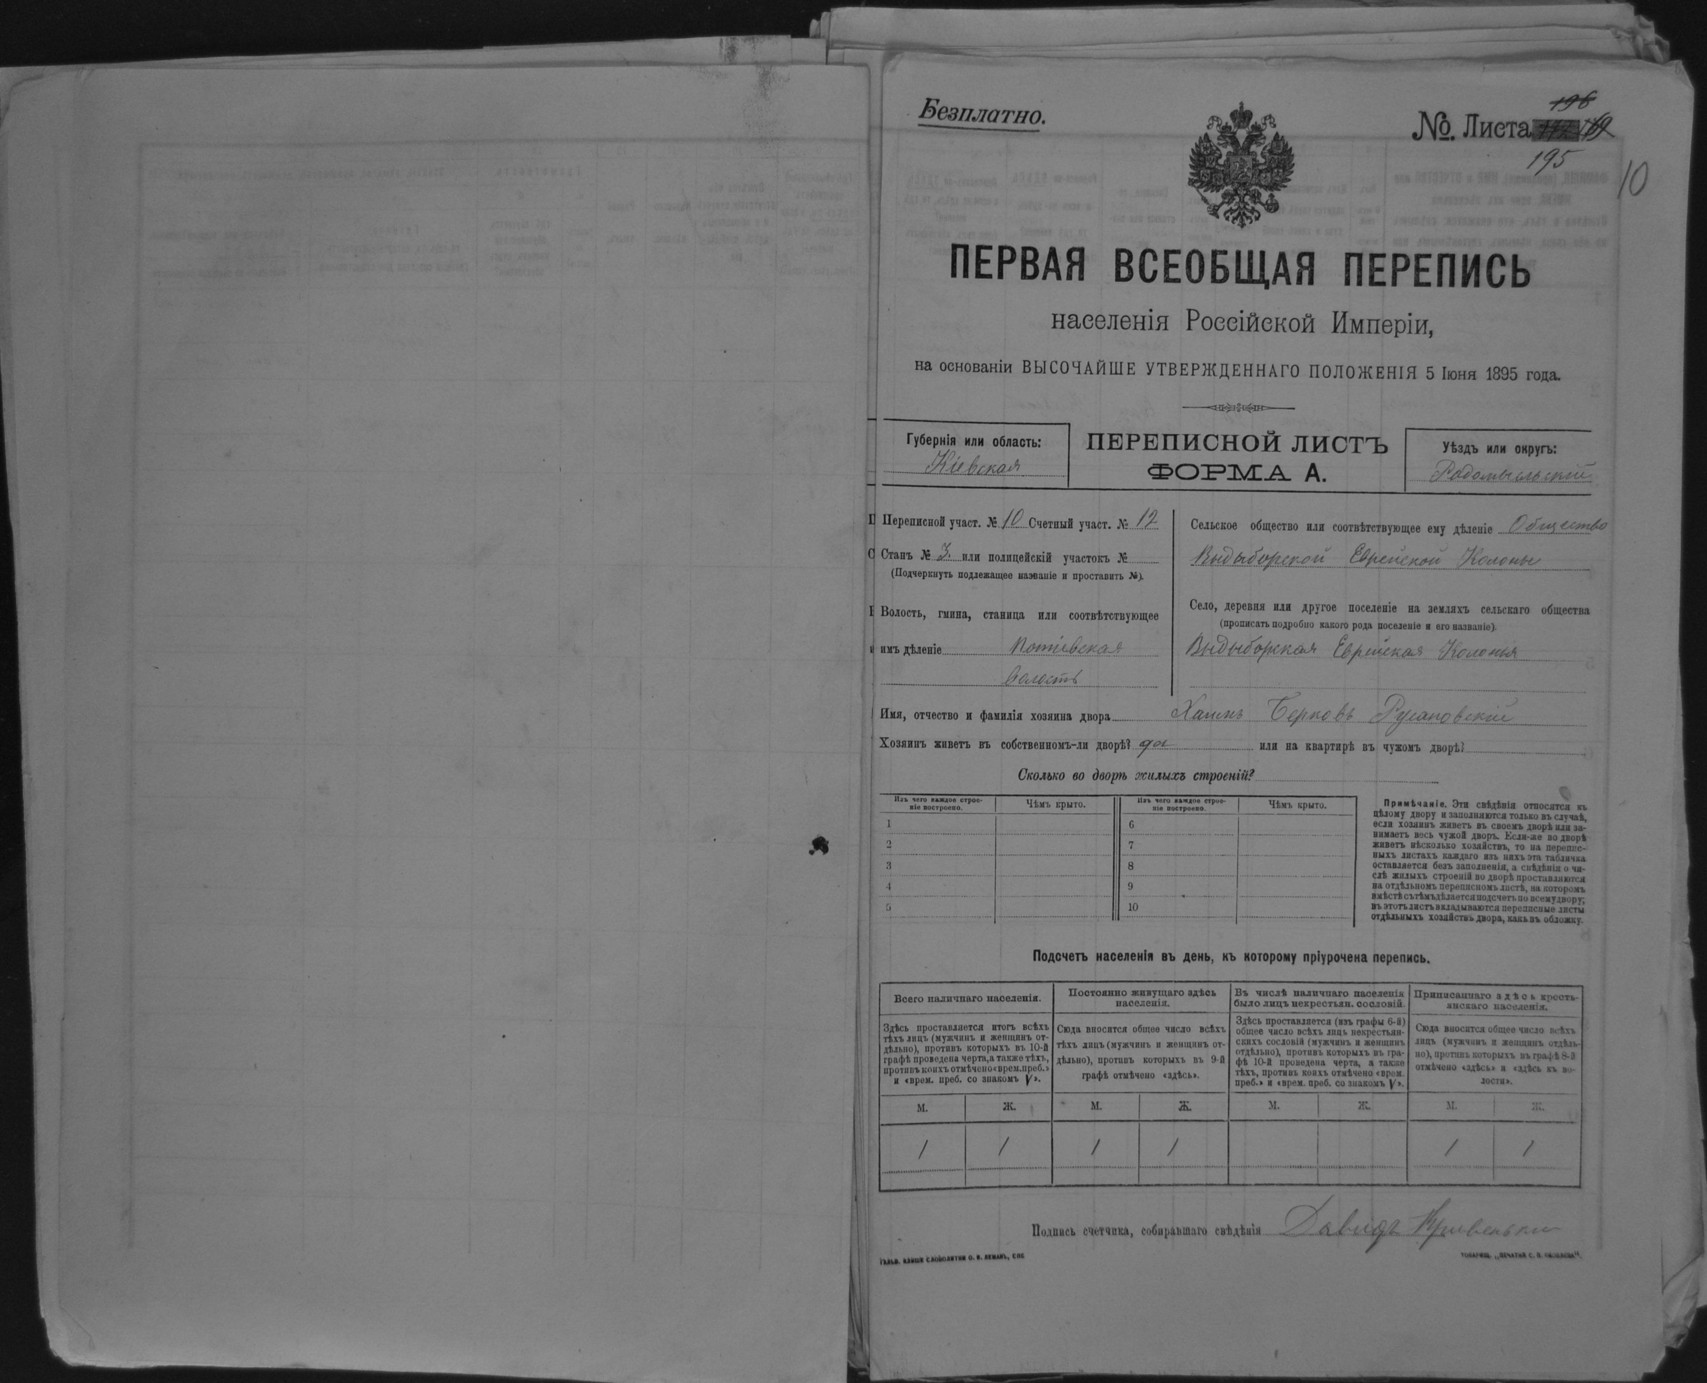 Безплатно.
№. Листа
196
195
10
ПЕРВАЯ ВСЕОБЩАЯ ПЕРЕПИСЬ
населенія Россійской Имперіи,
на основаніи ВЫСОЧАЙШЕ УТВЕРЖДЕННАГО ПОЛОЖЕНІЯ 5 Іюня 1895 года.
Губернія или область:
Кіевская
ПЕРЕПИСНОЙ ЛИСТЪ
ФОРМА А.
Уѣздъ или округъ:
Радомысльскій
Переписной участ. № 10 Счетный участ. № 12
Станъ № 3 или полицейскій участокъ №
(Подчеркнуть подлежащее названіе и проставить №).
Волость, гмина, станица или соотвѣтствующее
имъ дѣленіе Потіевская
волость
Сельское общество или соотвѣтствующее ему дѣленіе Общество
Выдыборской Еврейской Колоны
Село, деревня или другое поселеніе на земляхъ сельскаго общества
(прописать подробно какого рода поселеніе и его названіе).
Выдыборская Еврейская Колонія
Имя, отчество и фамилія хозяина двора Хаимъ Берковъ Русановскій
Хозяинъ живетъ въ собственномъ-ли дворѣ? да или на квартирѣ въ чужомъ дворѣ?
Сколько во дворѣ жилыхъ строеній?
Изъ чего каждое строе-
ніе построено.
Чѣмъ крыто.
Изъ чего каждое строе-
ніе построено.
Чѣмъ крыто.
1 6
2 7
3 8
4 9
5 10
Примѣчаніе. Эти свѣдѣнія относятся къ
цѣлому двору и заполняются только въ случаѣ,
если хозяинъ живетъ въ своемъ дворѣ или за-
нимаетъ весь чужой дворъ. Если-же во дворѣ
живетъ нѣсколько хозяйствъ, то на перепис-
ныхъ листахъ каждаго изъ нихъ эта табличка
оставляется безъ заполненія, а свѣдѣнія о чи-
слѣ жилыхъ строеній во дворѣ проставляются
на отдѣльномъ переписномъ листѣ, на которомъ
вмѣстѣ съ тѣмъ дѣлается подсчетъ по всему двору;
въ этотъ листъ вкладываются переписные листы
отдѣльныхъ хозяйствъ двора, какъ въ обложку.
Подсчетъ населенія въ день, къ которому пріурочена перепись.
Всего наличнаго населенія.
Здѣсь проставляется итогъ всѣхъ
тѣхъ лицъ (мужчинъ и женщинъ от-
дѣльно), противъ которыхъ въ 10-й
графѣ проведена черта, а также тѣхъ,
противъ коихъ отмѣчено «врем. преб.»
и «врем. преб. со знакомъ V».
Постоянно живущаго здѣсь
населенія.
Сюда вносится общее число всѣхъ
тѣхъ лицъ (мужчинъ и женщинъ от-
дѣльно), противъ которыхъ въ 9-й
графѣ отмѣчено «здѣсь».
Въ числѣ наличнаго населенія
было лицъ некрестьян. сословій.
Здѣсь проставляется (изъ графы 6-й)
общее число всѣхъ лицъ некрестьян-
скихъ сословій (мужчинъ и женщинъ
отдѣльно), противъ которыхъ въ гра-
фѣ 10-й проведена черта, а также
тѣхъ, противъ коихъ отмѣчено «врем.
преб.» и «врем. преб. со знакомъ V».
Приписаннаго здѣсь кресть-
янскаго населенія.
Сюда вносится общее число всѣхъ
лицъ (мужчинъ и женщинъ отдѣль-
но), противъ которыхъ въ графѣ 8-й
отмѣчено «здѣсь» и «здѣсь къ во-
лости».
М. Ж. М. Ж. М. Ж. М. Ж.
1 1 1 1 1 1
Подпись счетчика, собиравшаго свѣдѣнія Давидъ Кривенький